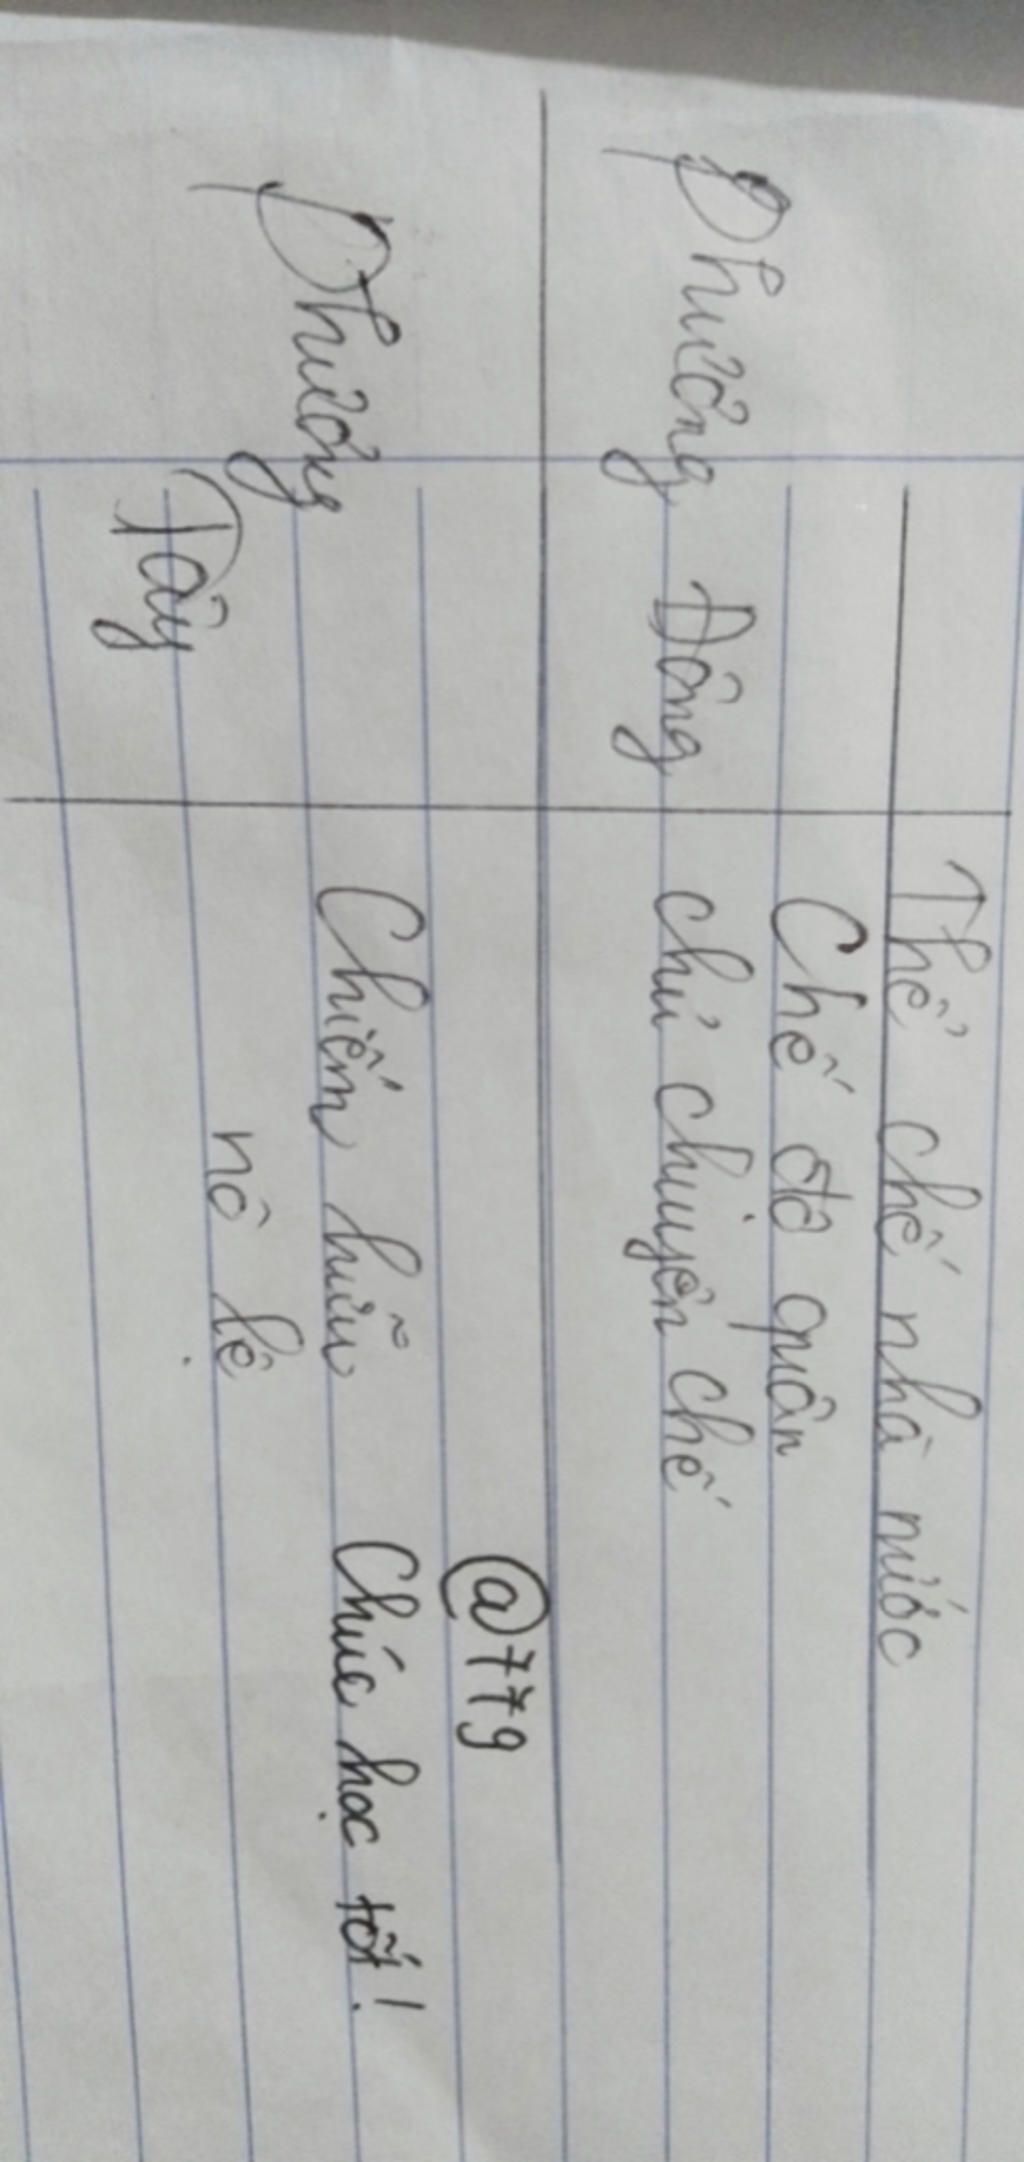 Thể chế nhà nước
Phương Đông
Chế độ quân
chủ chuyên chế
@779
Phương
Tây
Chiếm hữu
nô lệ
Chúc học tốt!